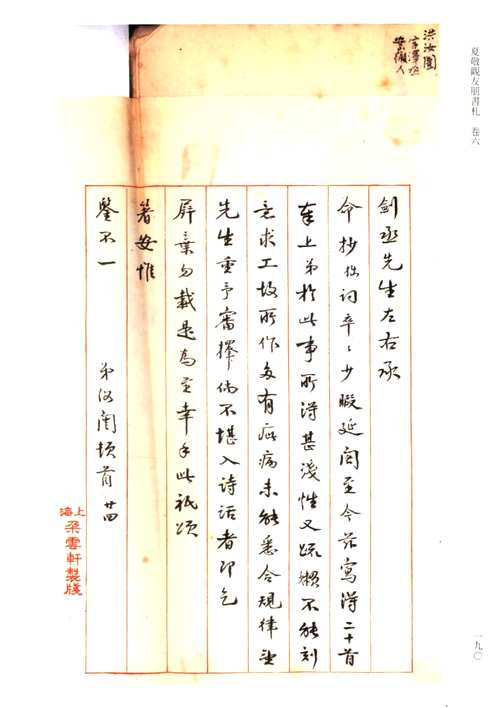 夏敬觀友朋書札 卷六
洪汝闓
字澤丞
安徽人
劍丞先生左右承
命抄拙詞卒卒少暇延閣至今茲寫得二十首
奉上弟於此事所得甚淺性又疏懶不能刻
意求工故所作多有疵病未能悉合規律望
先生重予審擇倘不堪入詩話者即乞
屏棄勿載是為至幸手此祗頌
著安惟
鑒不一
弟汝闓頓首 廿四
上海
朵雲軒製牋
一九〇